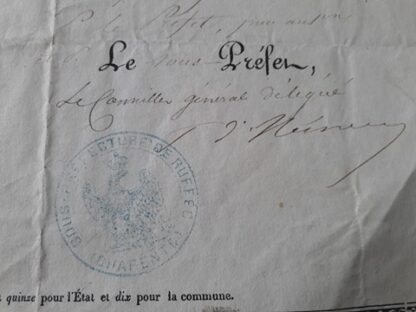 P. le Préfet,
Le sous-Préfet,
Le Conseiller général délégué
SOUS-PRÉFECTURE DE RUFFEC
(CHARENTE)
quinze pour l'État et dix pour la commune.